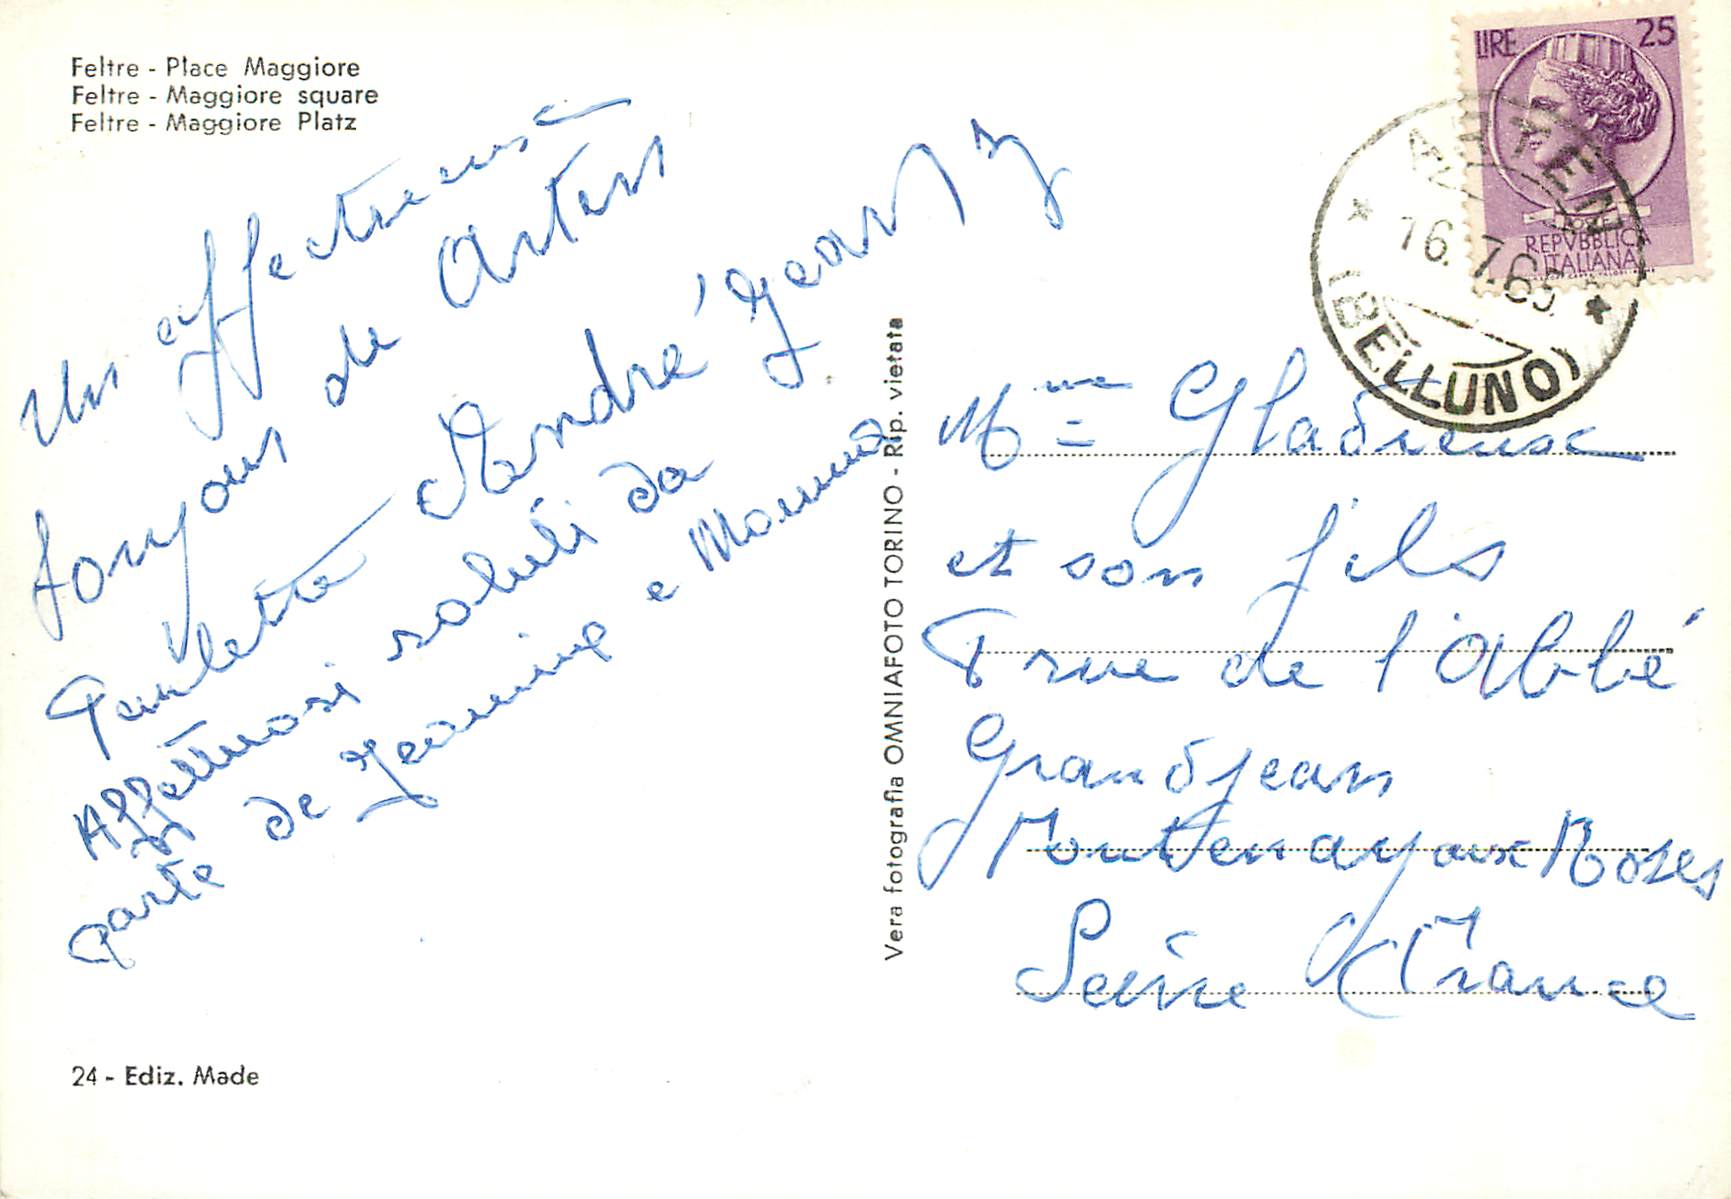 Feltre - Place Maggiore
Feltre - Maggiore square
Feltre - Maggiore Platz
Un affectueux
bonjour de Arten
Paulette André Jean
Affettuosi saluti da
parte de Jeannine e Mamma
24 - Ediz. Made
Vera fotografia OMNIAFOTO TORINO - Rip. vietata
LIRE 25
REPVBBLICA
ITALIANA
ARTEN
16.7.65
(BELLUNO)
Mme
et son fils
7 rue de l'Abbé
Grandjean
Fontenay aux Roses
Seine (France